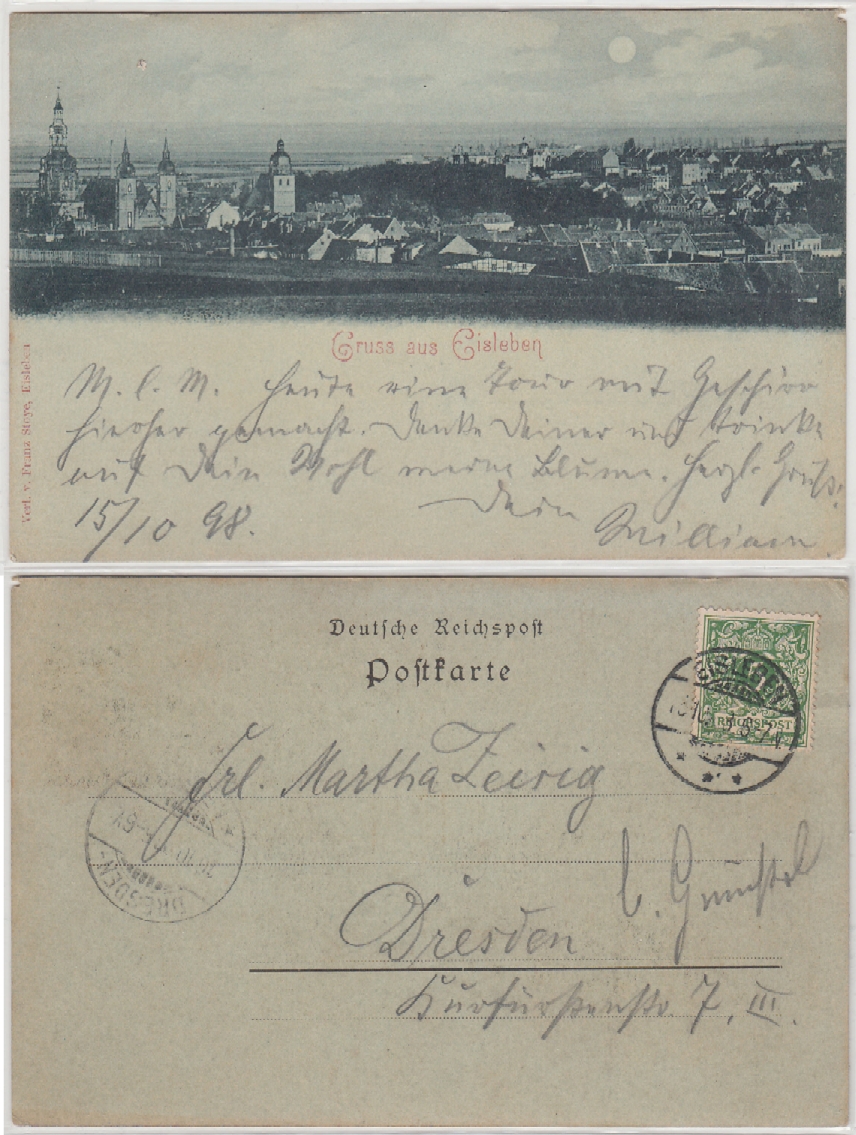 Gruss aus Eisleben
Verl. v. Franz Stoye, Eisleben
M. l. M. Heute eine Tour mit Geschirr
hierher gemacht. Denke Deiner und trinke
auf Dein Wohl meine Blume. Herzl. Gruß.
Dein
15/10 98. William.
Deutsche Reichspost
Postkarte
EISLEBEN
REICHSPOST
Frl. Martha Zeirig
b.
Dresden
Kurfürstenstr 7, III.
DRESDEN